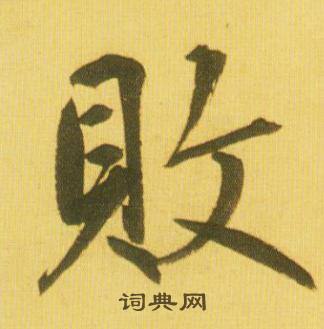 敗
词典网